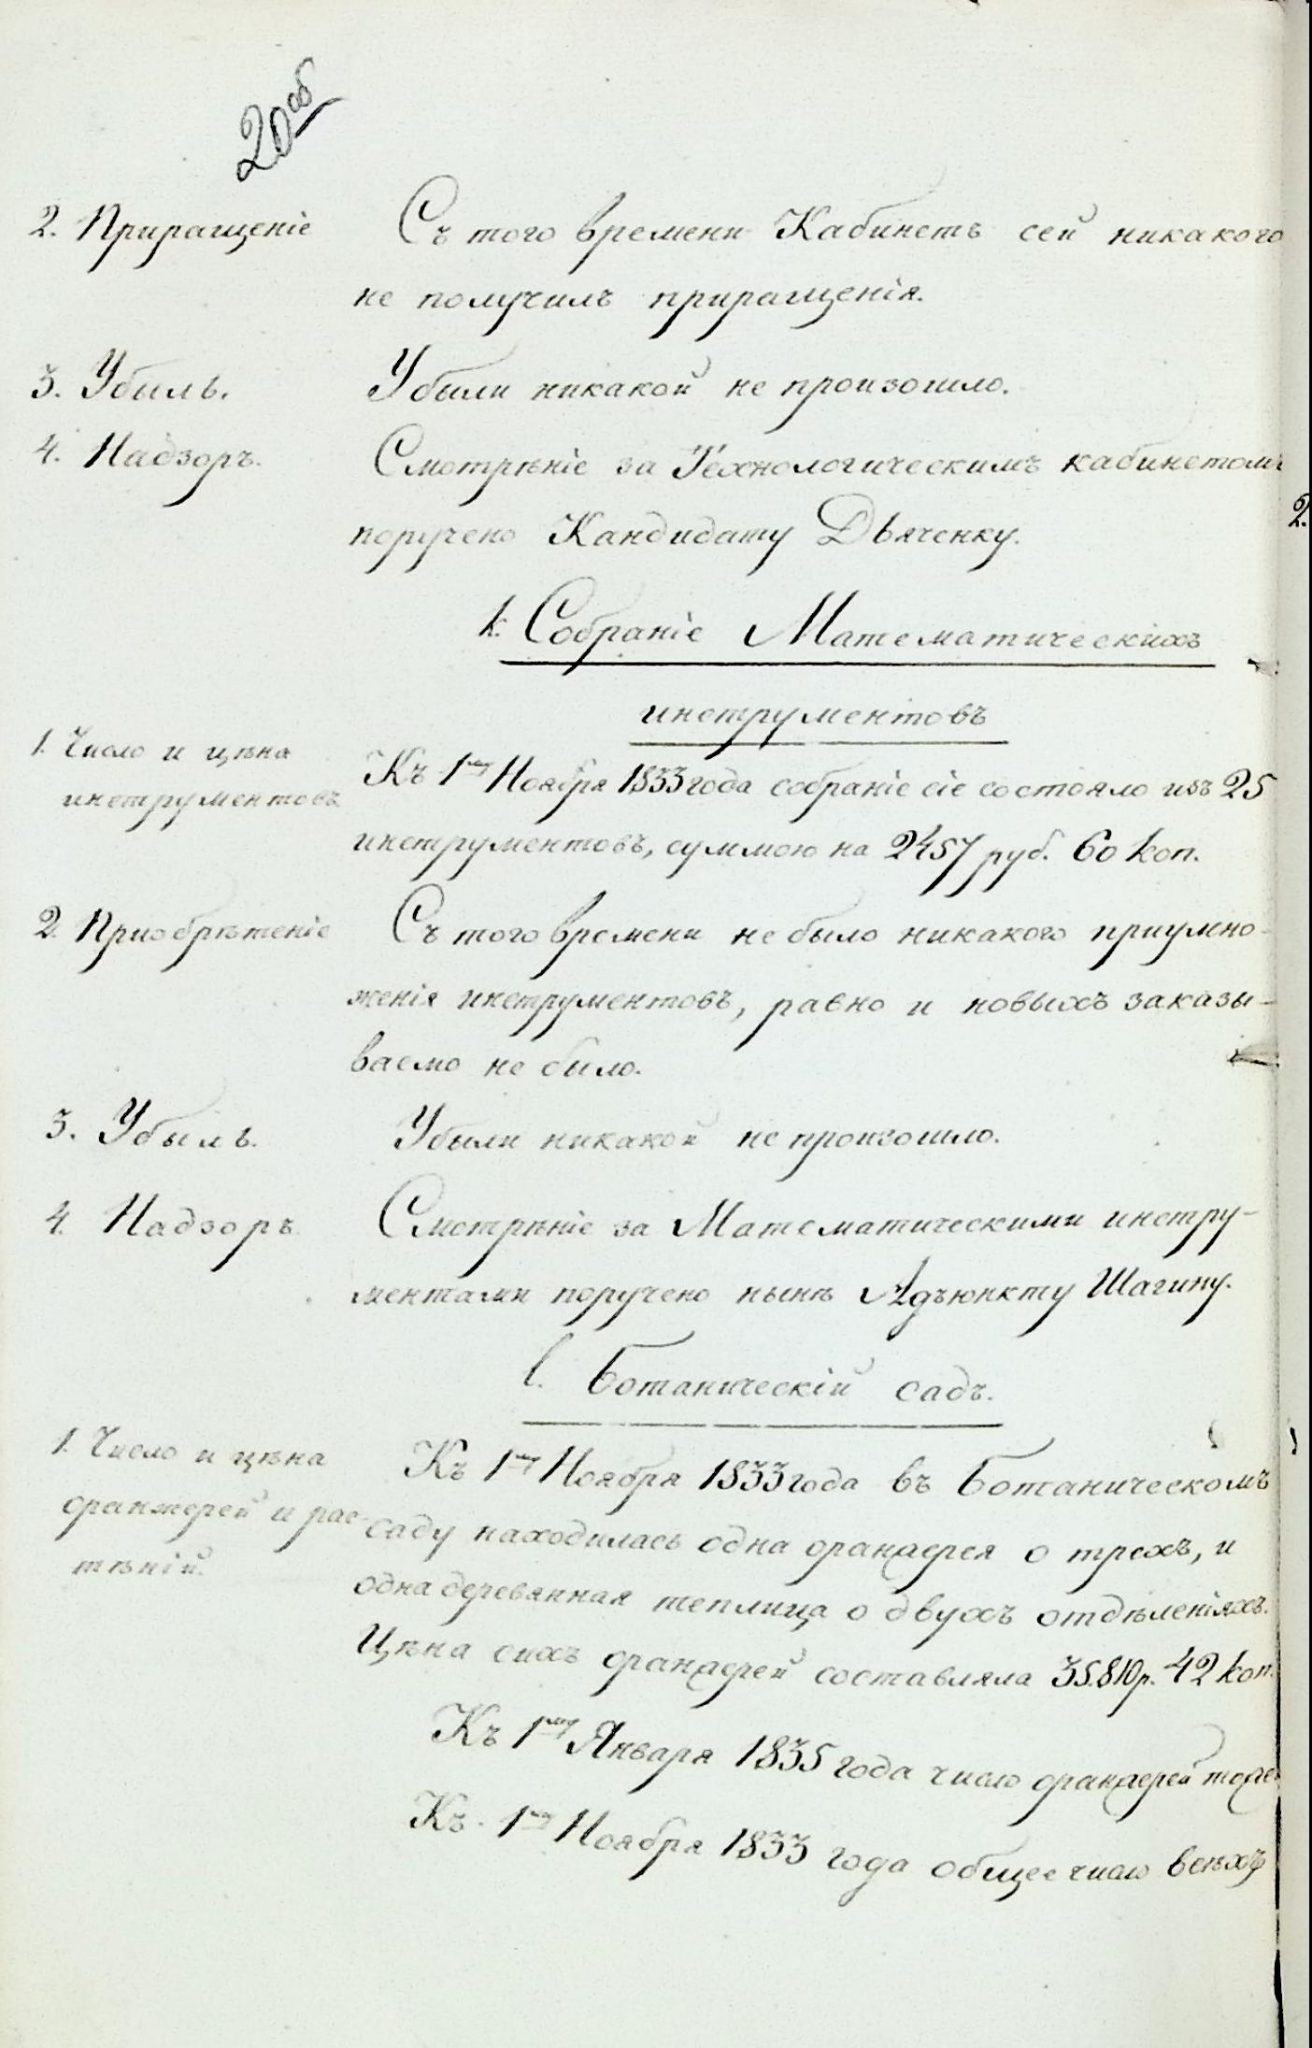 20об
2. Приращеніе
Съ того времени Кабинетъ сей никакого
не получилъ приращенія.
3. Убыль.
Убыли никакой не произошло.
4. Надзоръ.
Смотрѣніе за Технологическимъ кабинетомъ
поручено Кандидату Дьяченку.
k. Собраніе Математическихъ
инструментовъ
1. Число и цѣна
инструментовъ
Къ 1му Ноября 1833 года собраніе сіе состояло изъ 25
инструментовъ, суммою на 2457 руб. 60 коп.
2. Приобрѣтеніе
Съ того времени не было никакого приумно-
женія инструментовъ, равно и новыхъ заказы-
ваемо не было.
3. Убыль.
Убыли никакой не произошло.
4. Надзоръ.
Смотрѣніе за Математическими инстру-
ментами поручено нынѣ Адъюнкту Шагину.
l. Ботаническій садъ.
1. Число и цѣна
оранжерей и рас-
тѣній.
Къ 1му Ноября 1833 года въ Ботаническомъ
саду находилась одна оранжерея о трехъ, и
одна деревянная теплица о двухъ отдѣленіяхъ.
Цѣна сихъ оранжерей составляла 35.810 р. 42 коп.
Къ 1му Января 1835 года число оранжерей тоже.
Къ 1му Ноября 1833 года общее число всѣхъ
2.